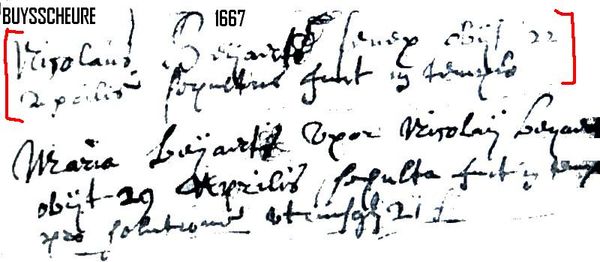 BUYSSCHEURE 1667
Nicolaus Beyaert senex obijt 22
Aprilis sepultus fuit in templo
Maria Beyaert Uxor Nicolaij Beyaer
obijt 29 Aprilis, sepulta fuit in temp
pro solutione utriusq 21